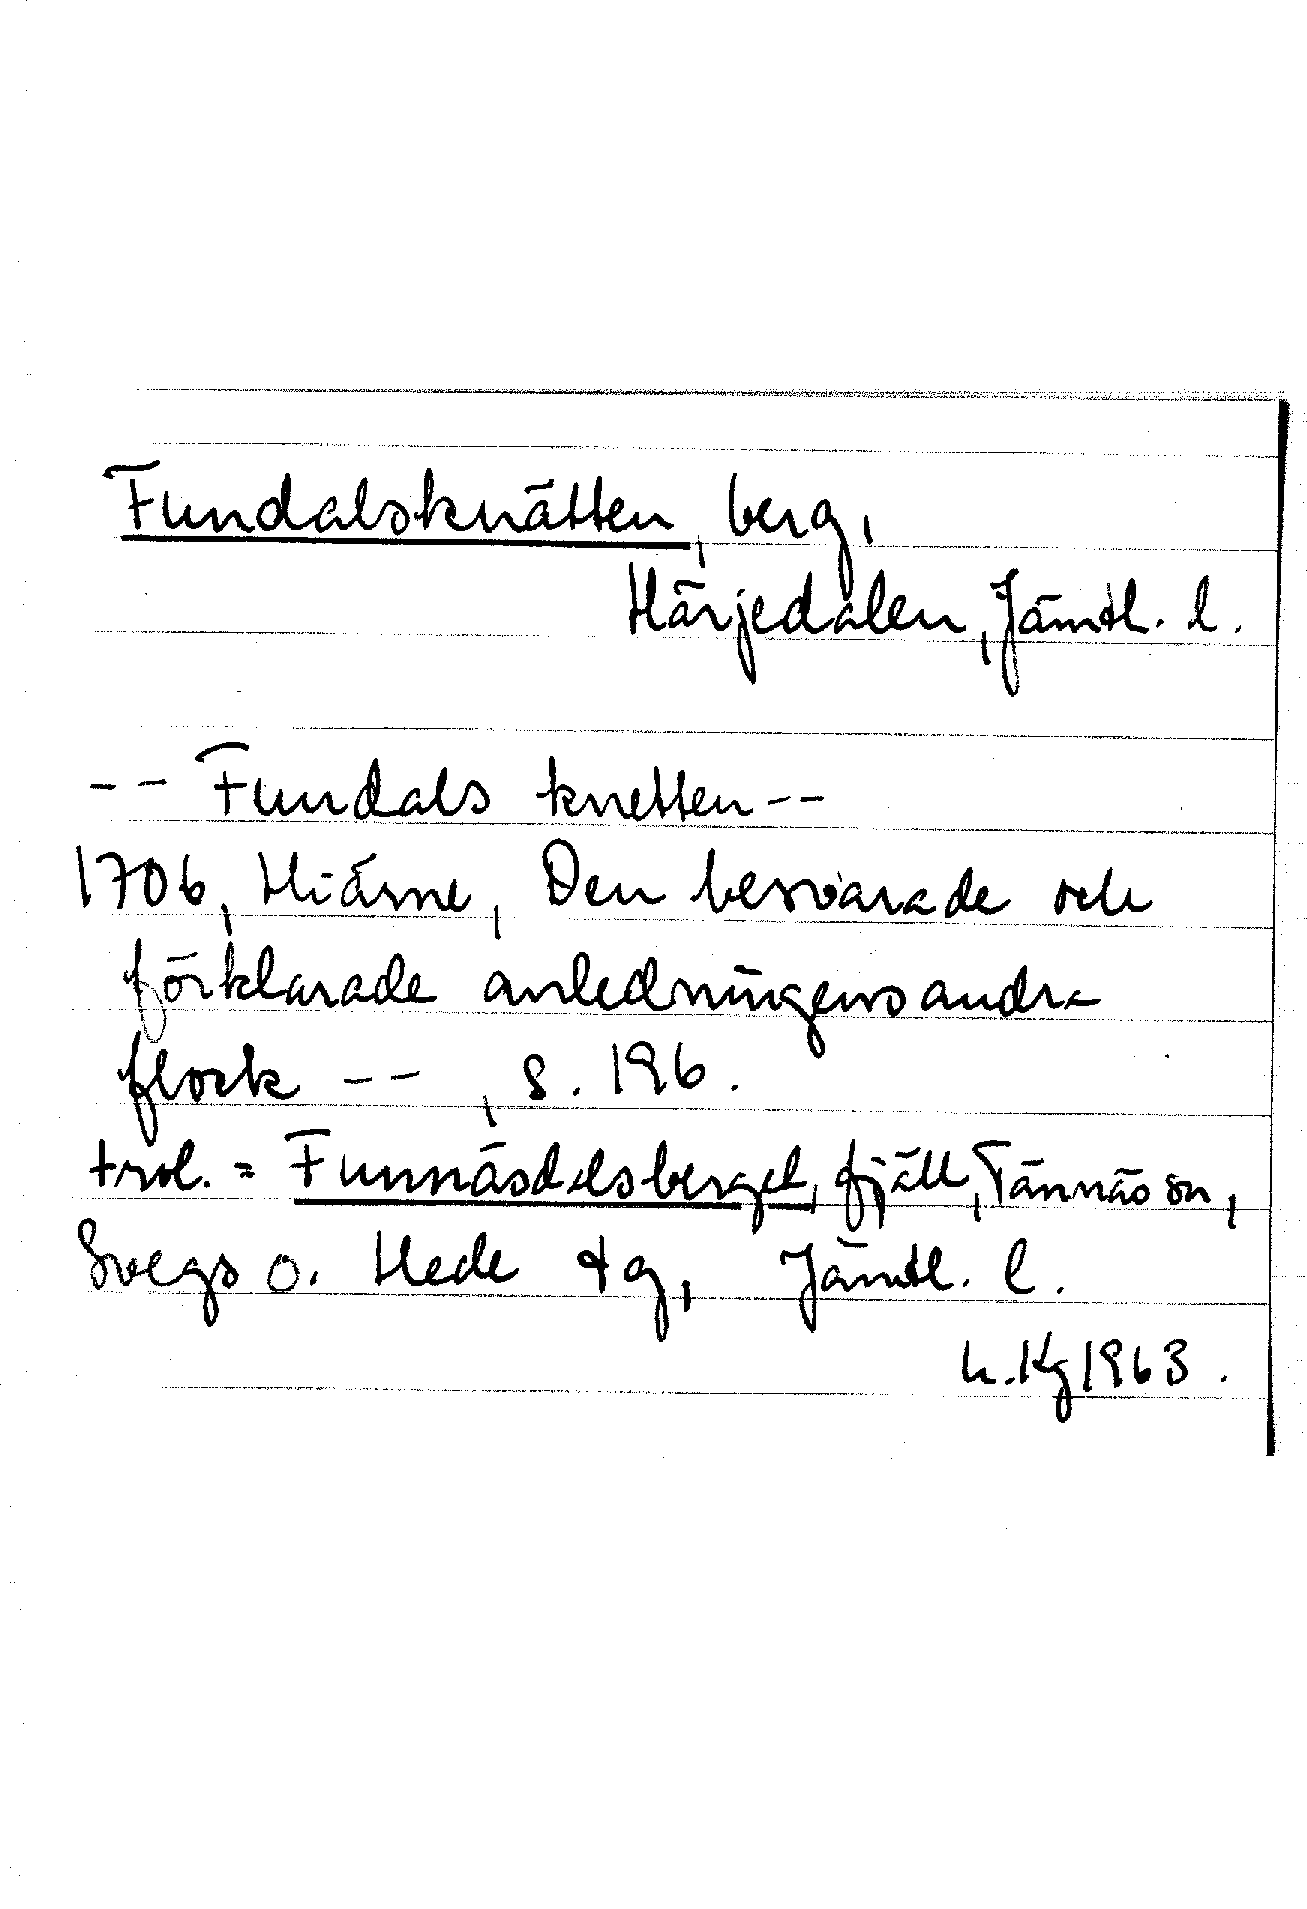 Fundalsknätten, berg,
Härjedalen, Jämtl. l.
-- Fundals knetten --
1706, Hiärne, Den besvarade och
förklarade anledningens andra
flock -- , s. 196.
trol. = Funnäsdalsberget, fjäll, Tännäs sn,
Svegs o. Hede tg, Jämtl. l.
L. Kg 1963.